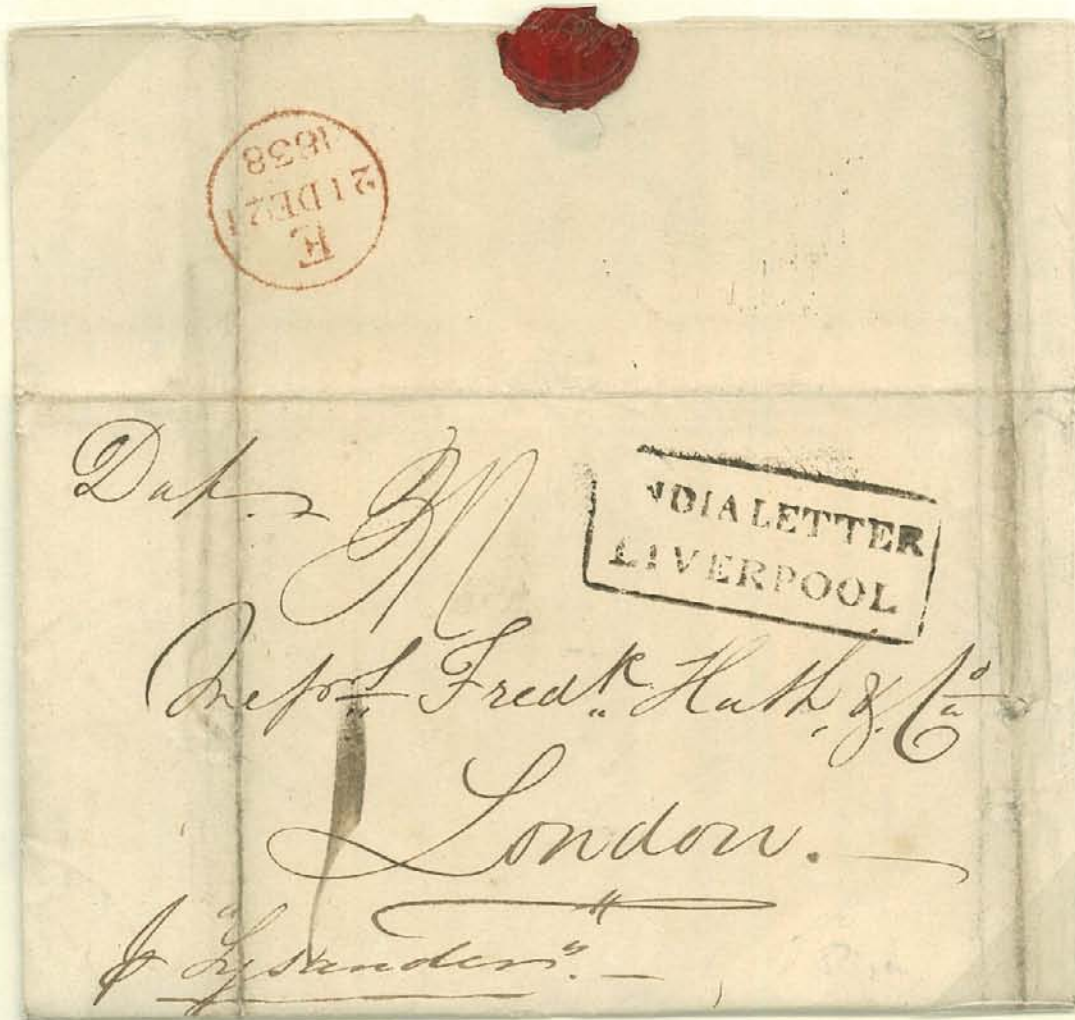 1838
21 DE 21
E
Dup.
NDIA LETTER
LIVERPOOL
Messrs. Fredk. Huth, & Co
London.
p "Lysander".